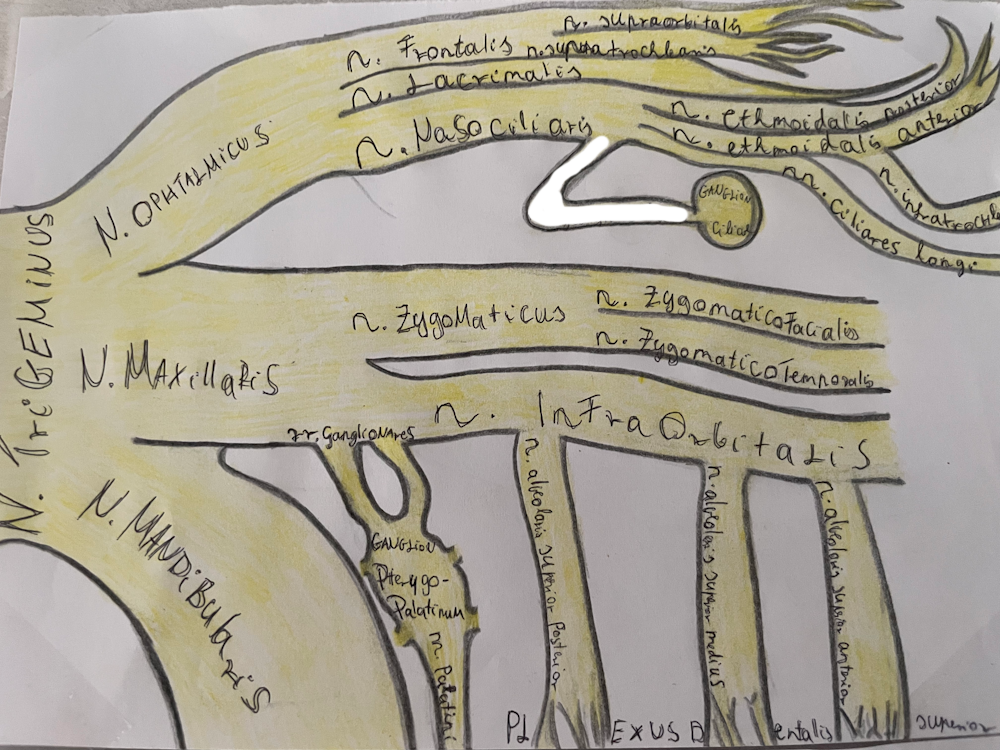 n. supraorbitalis
n. Frontalis
n. supratrochlearis
n. Lacrimalis
n. NasociLiaris
n. ethmoidalis posterior
n. ethmoidalis anterior
n. infratrochle
nn. ciliares longi
GANGLION
Ciliar
N. OPHTALMICUS
N. TriGEMINUS
n. ZygoMaticus
n. ZygomaticoFacialis
n. ZygomaticoTemporalis
N. MAXillaRiS
n. InFraOrbitaLiS
rr. GanglioNares
N. MANDiBulariS
GANGLION
Pterygo-
Palatinum
nn. Palatini
n. alveolaris superior Posterior
n. alveolaris superior medius
n. alveolaris superior anterior
PLEXUS Dentalis superior